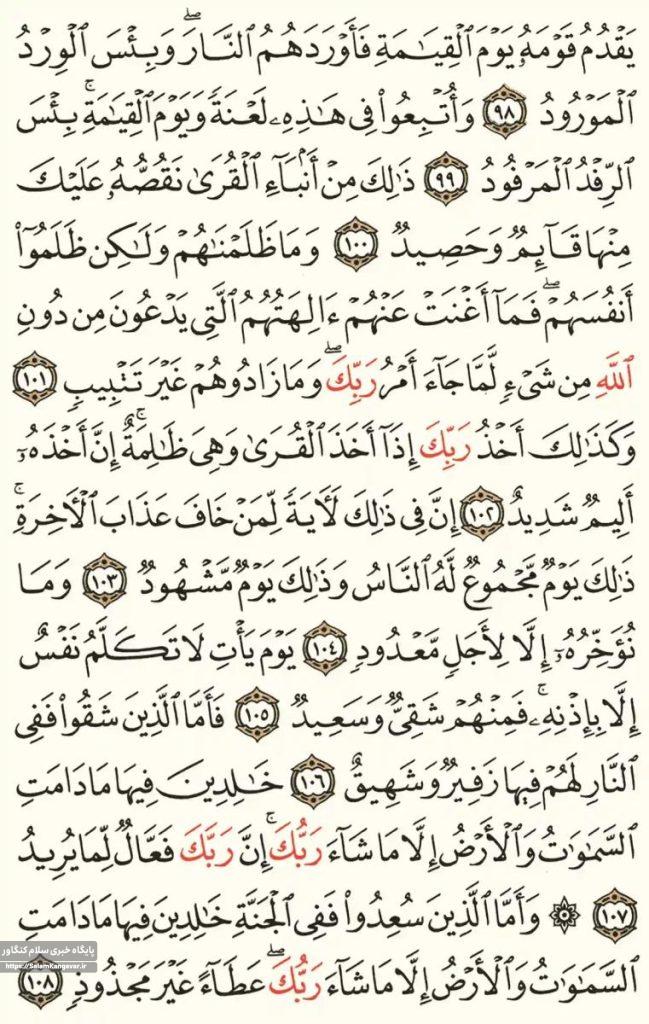 يَقْدُمُ قَوْمَهُۥ يَوْمَ ٱلْقِيَٰمَةِ فَأَوْرَدَهُمُ ٱلنَّارَ ۖ وَبِئْسَ ٱلْوِرْدُ
ٱلْمَوْرُودُ ٩٨ وَأُتْبِعُوا۟ فِى هَٰذِهِۦ لَعْنَةً وَيَوْمَ ٱلْقِيَٰمَةِ ۚ بِئْسَ
ٱلرِّفْدُ ٱلْمَرْفُودُ ٩٩ ذَٰلِكَ مِنْ أَنۢبَآءِ ٱلْقُرَىٰ نَقُصُّهُۥ عَلَيْكَ
مِنْهَا قَآئِمٌ وَحَصِيدٌ ١٠٠ وَمَا ظَلَمْنَٰهُمْ وَلَٰكِن ظَلَمُوٓا۟
أَنفُسَهُمْ ۖ فَمَآ أَغْنَتْ عَنْهُمْ ءَالِهَتُهُمُ ٱلَّتِى يَدْعُونَ مِن دُونِ
ٱللَّهِ مِن شَىْءٍ لَّمَّا جَآءَ أَمْرُ رَبِّكَ ۖ وَمَا زَادُوهُمْ غَيْرَ تَتْبِيبٍ ١٠١
وَكَذَٰلِكَ أَخْذُ رَبِّكَ إِذَآ أَخَذَ ٱلْقُرَىٰ وَهِىَ ظَٰلِمَةٌ ۚ إِنَّ أَخْذَهُۥٓ
أَلِيمٌ شَدِيدٌ ١٠٢ إِنَّ فِى ذَٰلِكَ لَءَايَةً لِّمَنْ خَافَ عَذَابَ ٱلْءَاخِرَةِ ۚ
ذَٰلِكَ يَوْمٌ مَّجْمُوعٌ لَّهُ ٱلنَّاسُ وَذَٰلِكَ يَوْمٌ مَّشْهُودٌ ١٠٣ وَمَا
نُؤَخِّرُهُۥٓ إِلَّا لِأَجَلٍ مَّعْدُودٍ ١٠٤ يَوْمَ يَأْتِ لَا تَكَلَّمُ نَفْسٌ
إِلَّا بِإِذْنِهِۦ ۚ فَمِنْهُمْ شَقِىٌّ وَسَعِيدٌ ١٠٥ فَأَمَّا ٱلَّذِينَ شَقُوا۟ فَفِى
ٱلنَّارِ لَهُمْ فِيهَا زَفِيرٌ وَشَهِيقٌ ١٠٦ خَٰلِدِينَ فِيهَا مَا دَامَتِ
ٱلسَّمَٰوَٰتُ وَٱلْأَرْضُ إِلَّا مَا شَآءَ رَبُّكَ ۚ إِنَّ رَبَّكَ فَعَّالٌ لِّمَا يُرِيدُ
١٠٧ ۞ وَأَمَّا ٱلَّذِينَ سُعِدُوا۟ فَفِى ٱلْجَنَّةِ خَٰلِدِينَ فِيهَا مَا دَامَتِ
ٱلسَّمَٰوَٰتُ وَٱلْأَرْضُ إِلَّا مَا شَآءَ رَبُّكَ ۖ عَطَآءً غَيْرَ مَجْذُوذٍ ١٠٨
پایگاه خبری سلام کنگاور
https://SalamKangavar.ir